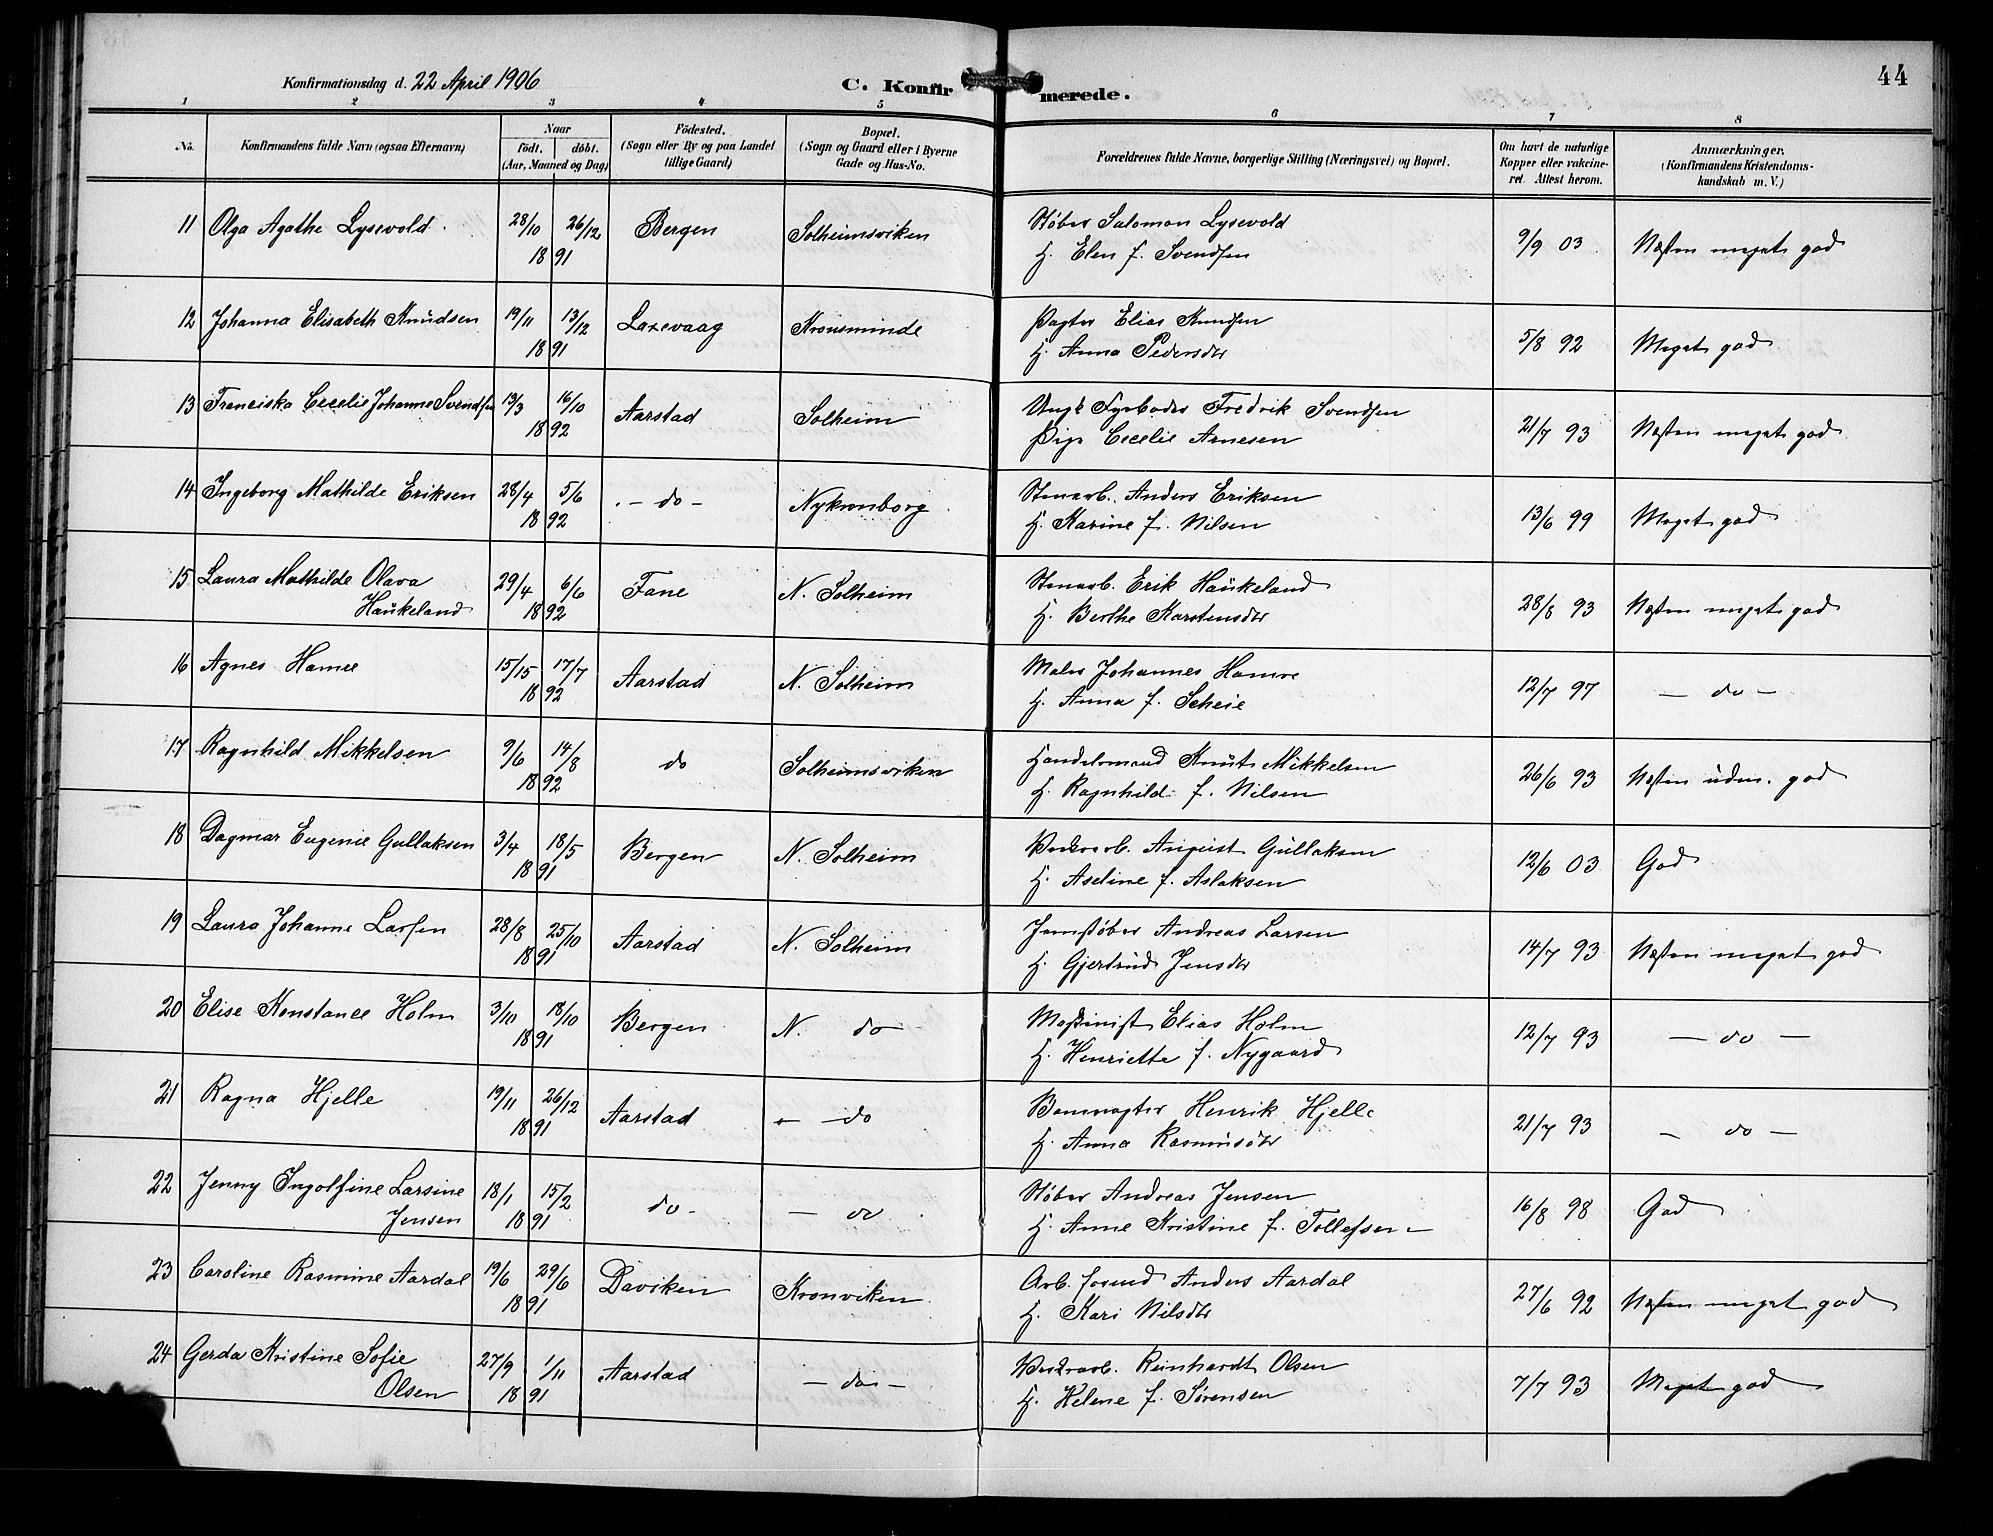 Konfirmationsdag d. 22 April 1906
C. Konfir merede.
44
1 2 3 4 5 6 7 8
No. Konfirmandens fulde Navn (ogsaa Efternavn) Naar født. døbt. (Aar, Maaned og Dag) Fødested. (Sogn eller By og paa Landet tillige Gaard) Bopæl. (Sogn og Gaard eller i Byerne Gade og Hus-No. Forældrenes fulde Navne, borgerlige Stilling (Næringsvei) og Bopæl. Om havt de naturlige Kopper eller vakcineret. Attest herom. Anmærkninger. (Konfirmandens Kristendomskundskab m. V.)
11 Olga Agathe Lysevold 28/10 26/12 Bergen Solheimsviken Støber Salomon Lysevold 9/9 03 Næsten meget god
18 91 H. Elen f. Svendsen
12 Johanna Elisabeth Knudsen 19/11 13/12 Laxevaag Kronsminde Pagter Elias Knudsen 5/8 92 Meget god
18 91 H. Anna Pedersdtr
13 Franciska Cecelie Johanne Svendsen 13/3 16/10 Aarstad Solheim Ungk Fyrbøder Fredrik Svendsen 21/7 93 Næsten meget god
18 92 Pige Cecelie Arnesen
14 Ingeborg Mathilde Eriksen 28/4 5/6 - do - Nykronborg Stenarb. Anders Eriksen 13/6 99 Meget god
18 92 H. Karine f. Nilsen
15 Laura Mathilde Olava 29/4 6/6 Fane N. Solheim Stenarb. Erik Haukeland 28/8 93 Næsten meget god
Haukeland 18 92 H. Berthe Karstensdtr
16 Agnes Hamre 15/15 17/7 Aarstad N. Solheim Maler Johannes Hamre 12/7 97 - do -
18 92 H. Anna f. Scheie
17 Ragnhild Mikkelsen 9/6 14/8 do Solheimsviken Handelsmand Knut Mikkelsen 26/6 93 Næsten udm. god
18 92 H. Ragnhild f. Nilsen
18 Dagmar Eugenie Gullaksen 3/4 18/5 Bergen N. Solheim Verksarb. August Gullaksen 12/6 03 God
18 91 H. Aseline f. Aslaksen
19 Laura Johanne Larsen 28/8 25/10 Aarstad N. Solheim Jernstøber Andreas Larsen 14/7 93 Næsten meget god
18 91 H. Gjertrud Jensdtr
20 Elise Konstance Holm 3/10 18/10 Bergen N. do Maskinist Elias Holm 12/7 93 - do -
18 91 H. Henriette f. Nygaard
21 Ragna Hjelle 19/11 26/12 Aarstad - do Banevogter Henrik Hjelle 21/7 93 - do -
18 91 H. Anna Rasmusdtr
22 Jenny Ingolfine Larsine 18/1 15/2 do - - do Støber Andreas Jensen 16/8 98 God
Jensen 18 91 H. Anne Kristine f. Tollefsen -
23 Caroline Rasmine Aardal 19/6 29/6 Daviken Kronviken Arb. formd Anders Aardal 27/6 92 Næsten meget god
18 91 H. Kari Nilsdtr
24 Gerda Kristine Sofie 27/9 1/11 Aarstad - do - Verksarb. Reinhardt Olsen 7/7 93 Meget god
Olsen 18 91 H. Helene f. Sørensen